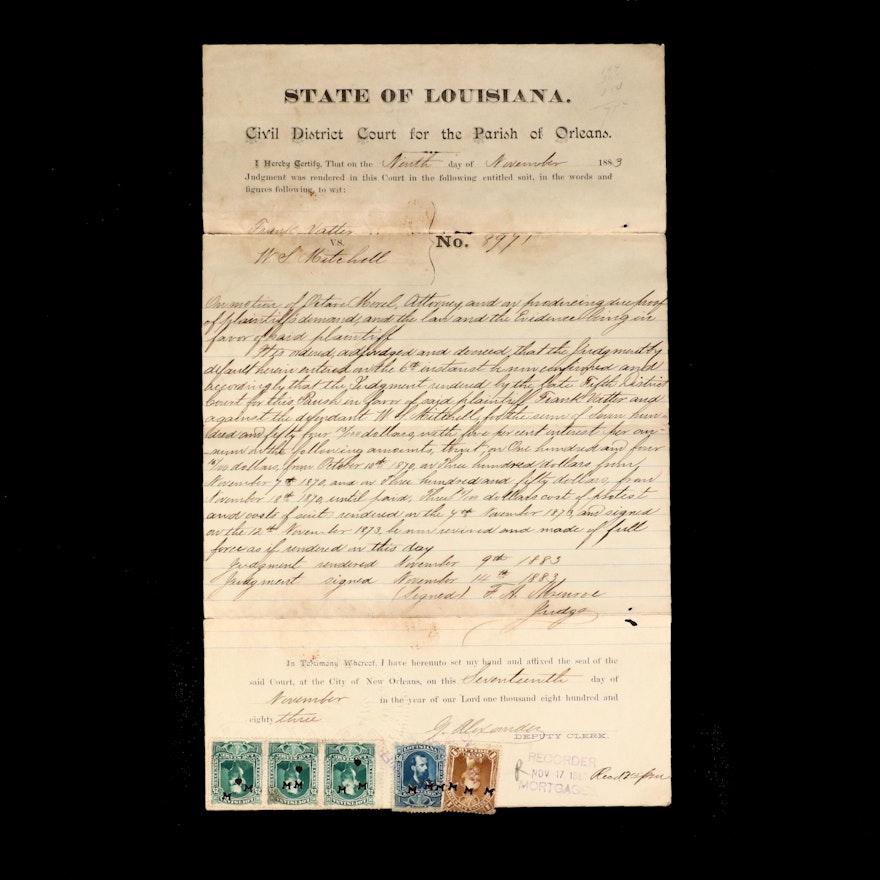 STATE OF LOUISIANA.
Civil District Court for the Parish of Orleans.
I Hereby Certify, That on the Ninth day of November 1883
Judgment was rendered in this Court in the following entitled suit, in the words and
figures following, to wit:
Frank Vatter
VS.
W S Mitchell
No. 8971
On motion of Octave Morel, Attorney and on producing due proof
of plaintiff's demand, and the law and the Evidence being in
favor of said plaintiff
It is ordered, adjudged and decreed, that the Judgment by
default herein entered on the 6th instant be now confirmed and
accordingly that the Judgment rendered by the late Fifth District
Court for this Parish in favor of said plaintiff Frank Vatter and
against the defendant W. S. Mitchell for the sum of Seven hun-
dred and fifty four dollars, with five per cent interest per an-
num on the following amounts, on One hundred and four
dollars, from October 10th 1870, on Three hundred dollars from
November 7th 1870, and on Three hundred and fifty dollars, from
November 8th 1870, until paid, Three dollars cost of protest
and costs of suit rendered on the 7th November 1873, and signed
on the 12th November 1873, be now revived and made of full
force as if rendered on this day
Judgment rendered November 9th 1883
Judgment signed November 14th 1883
(Signed) F. A. Monroe
Judge
In Testimony Whereof, I have hereunto set my hand and affixed the seal of the
said Court, at the City of New Orleans, on this Seventeenth day of
November in the year of our Lord one thousand eight hundred and
eighty three
J. Alexander
DEPUTY CLERK.
RECORDER
NOV 17 188
MORTGAGES
LOUISIANA